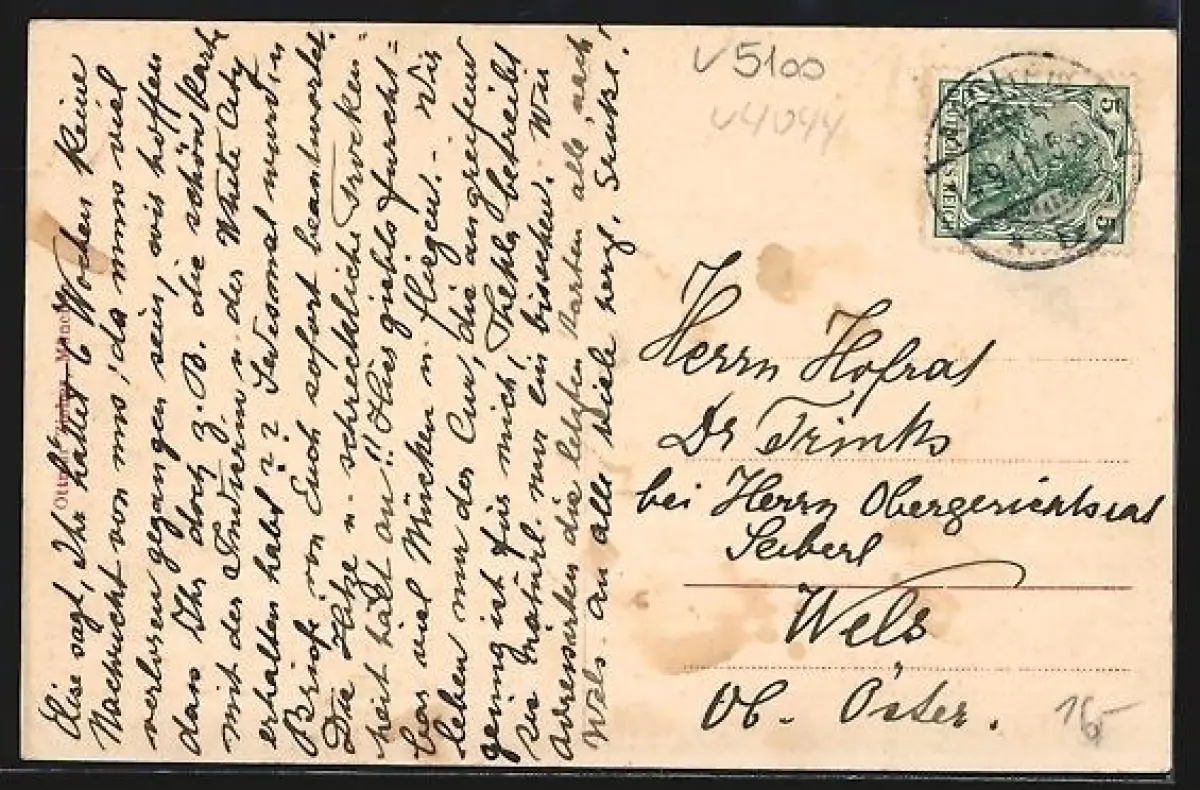 Elise sagt, Ihr hättet 6 Wochen keine
Nachricht von uns, da muss viel
verloren gegangen sein, wir hoffen
dass Ihr doch z. B. die schöne Karte
mit der u. der White City
erhalten habt?? Jedesmal wurden
Briefe von Euch sofort beantwortet.
Die Hitze u. schreckliche Trocken=
heit hält an!! Hier giebts furcht=
bar viel Mücken u. Fliegen. Wir
leben nur der Cur, die angreifend
genug ist für mich, Thekla betreibt
sie natürl. nur ein bisschen. Wir
adressirten die letzten Karten alle nach
Wels. An alle viele herzl. Grüsse!
Ottmar München
V 5100
V 4044
DEUTSCHES REICH
5
5
Herrn Hofrat
Dr Trinks
bei Herrn Obergerichtsrat
Seiberl
Wels
Ob. Öster.
16,-